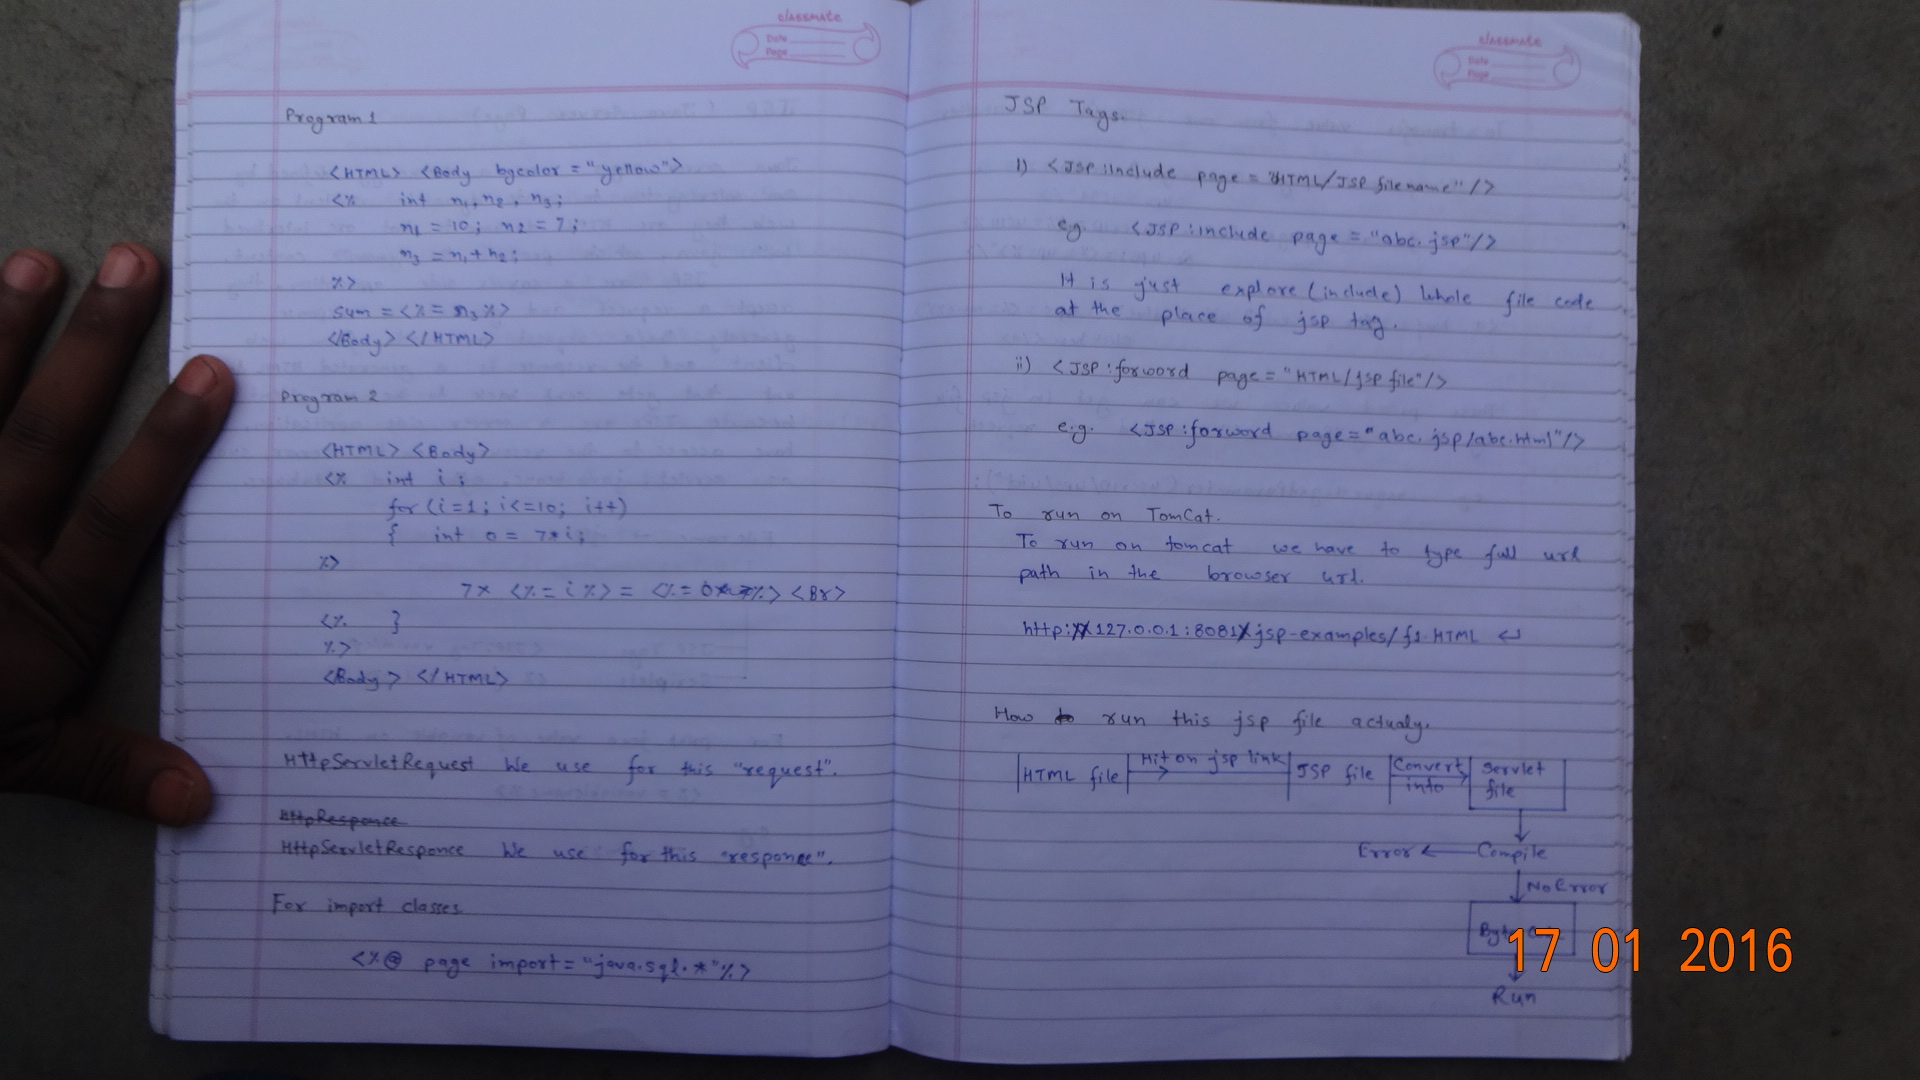 classmate
Date
Page
Program 1
<HTML> <Body bgcolor = "yellow">
<% int n1, n2, n3;
n1 = 10; n2 = 7;
n3 = n1 + n2;
%>
sum = <%= n3 %>
</Body> </HTML>
Program 2
<HTML> <Body>
<% int i;
for (i=1; i<=10; i++)
{ int o = 7*i;
%>
7x <%= i %> = <%= o %> <Br>
<% }
%>
</Body> </HTML>
HttpServletRequest We use for this "request".
HttpResponce
HttpServletResponce We use for this "responce".
For import classes
<%@ page import = "java.sql.*"%>
classmate
Date
Page
JSP Tags.
i) <JSP:Include page = "HTML/JSP filename"/>
eg. <JSP:include page = "abc.jsp"/>
It is just explore (include) whole file code
at the place of jsp tag.
ii) <JSP:forword page = "HTML/jsp file"/>
e.g. <JSP:forword page = "abc.jsp/abc.html"/>
To run on TomCat.
To run on tomcat we have to type full url
path in the browser url.
http://127.0.0.1:8081/jsp-examples/f1.HTML ↵
How to run this jsp file actualy.
HTML file Hit on jsp link JSP file Convert into Servlet file
Error ← Compile
No Error
17 01 2016
Run